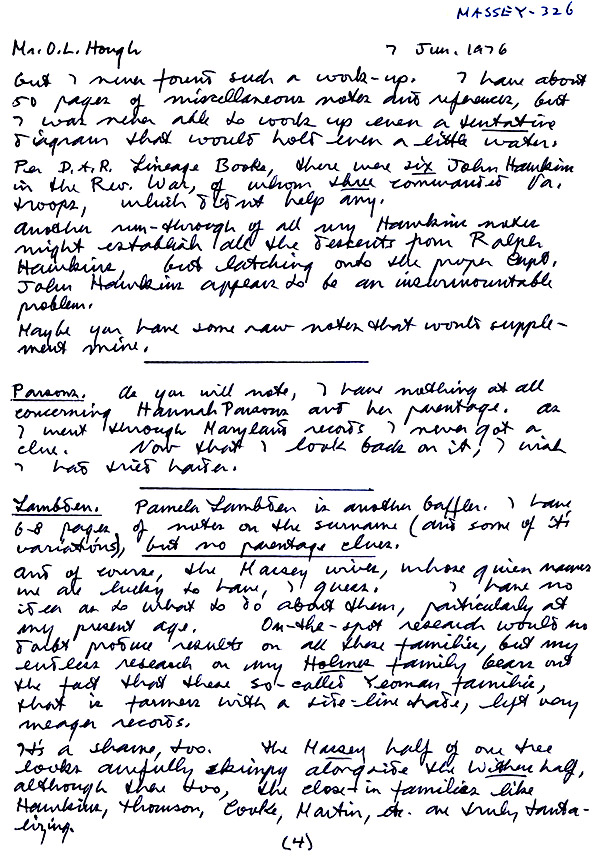 MASSEY-326
Mr. O.L. Hough 7 Jun. 1976
but I never found such a work-up. I have about
50 pages of miscellaneous notes and references, but
I was never able to work up even a tentative
diagram that would hold even a little water.
Per D.A.R. Lineage Books, there were six John Hawkins
in the Rev. War, of whom three commanded Va.
troops, which didn't help any.
Another run-through of all my Hawkins notes
might establish all the descents from Ralph
Hawkins, but latching onto the proper Capt.
John Hawkins appears to be an insurmountable
problem.
Maybe you have some raw notes that would supple-
ment mine.
Parsons. As you will note, I have nothing at all
concerning Hannah Parsons and her parentage. As
I went through Maryland records I never got a
clue. Now that I look back on it, I wish
I had tried harder.
Lambden. Pamela Lambden is another baffler. I have
6-8 pages of notes on the surname (and some of its
variations), but no parentage clues.
And of course, the Massey wives, whose given names
we are lucky to have, I guess. I have no
idea as to what to do about them, particularly at
my present age. On-the-spot research would no
doubt produce results on all these families, but my
endless research on my Holmes family bears out
the fact that these so-called Yeoman families,
that is farmers with a side-line trade, left very
meager records.
It's a shame, too. The Massey half of our tree
looks awfully skimpy alongside the Withers half,
although there too, the close-in families like
Hawkins, Thomson, Cooke, Martin, etc. are truly tanta-
lizing.
(4)